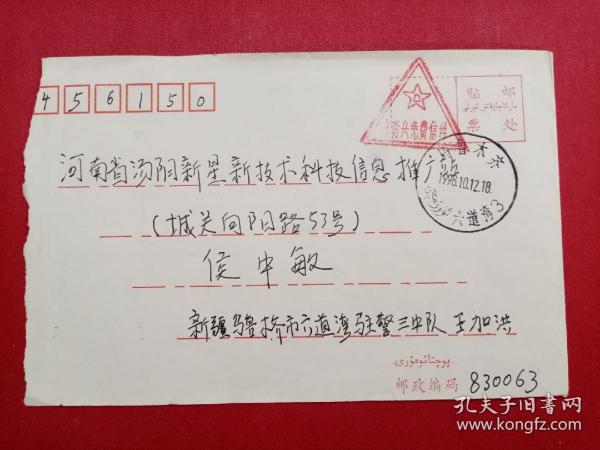 456150
义务兵免费信件
贴 邮
票 处
乌鲁木齐
1998.10.12.18
六道湾3
河南省汤阴新星新技术科技信息推广站
(城关向阳路53号)
侯中敏
新疆乌鲁木齐市六道湾驻警三中队 王加洪
پوچتا نومۇرى
邮政编码 830063
孔夫子旧书网
www.kongfz.com